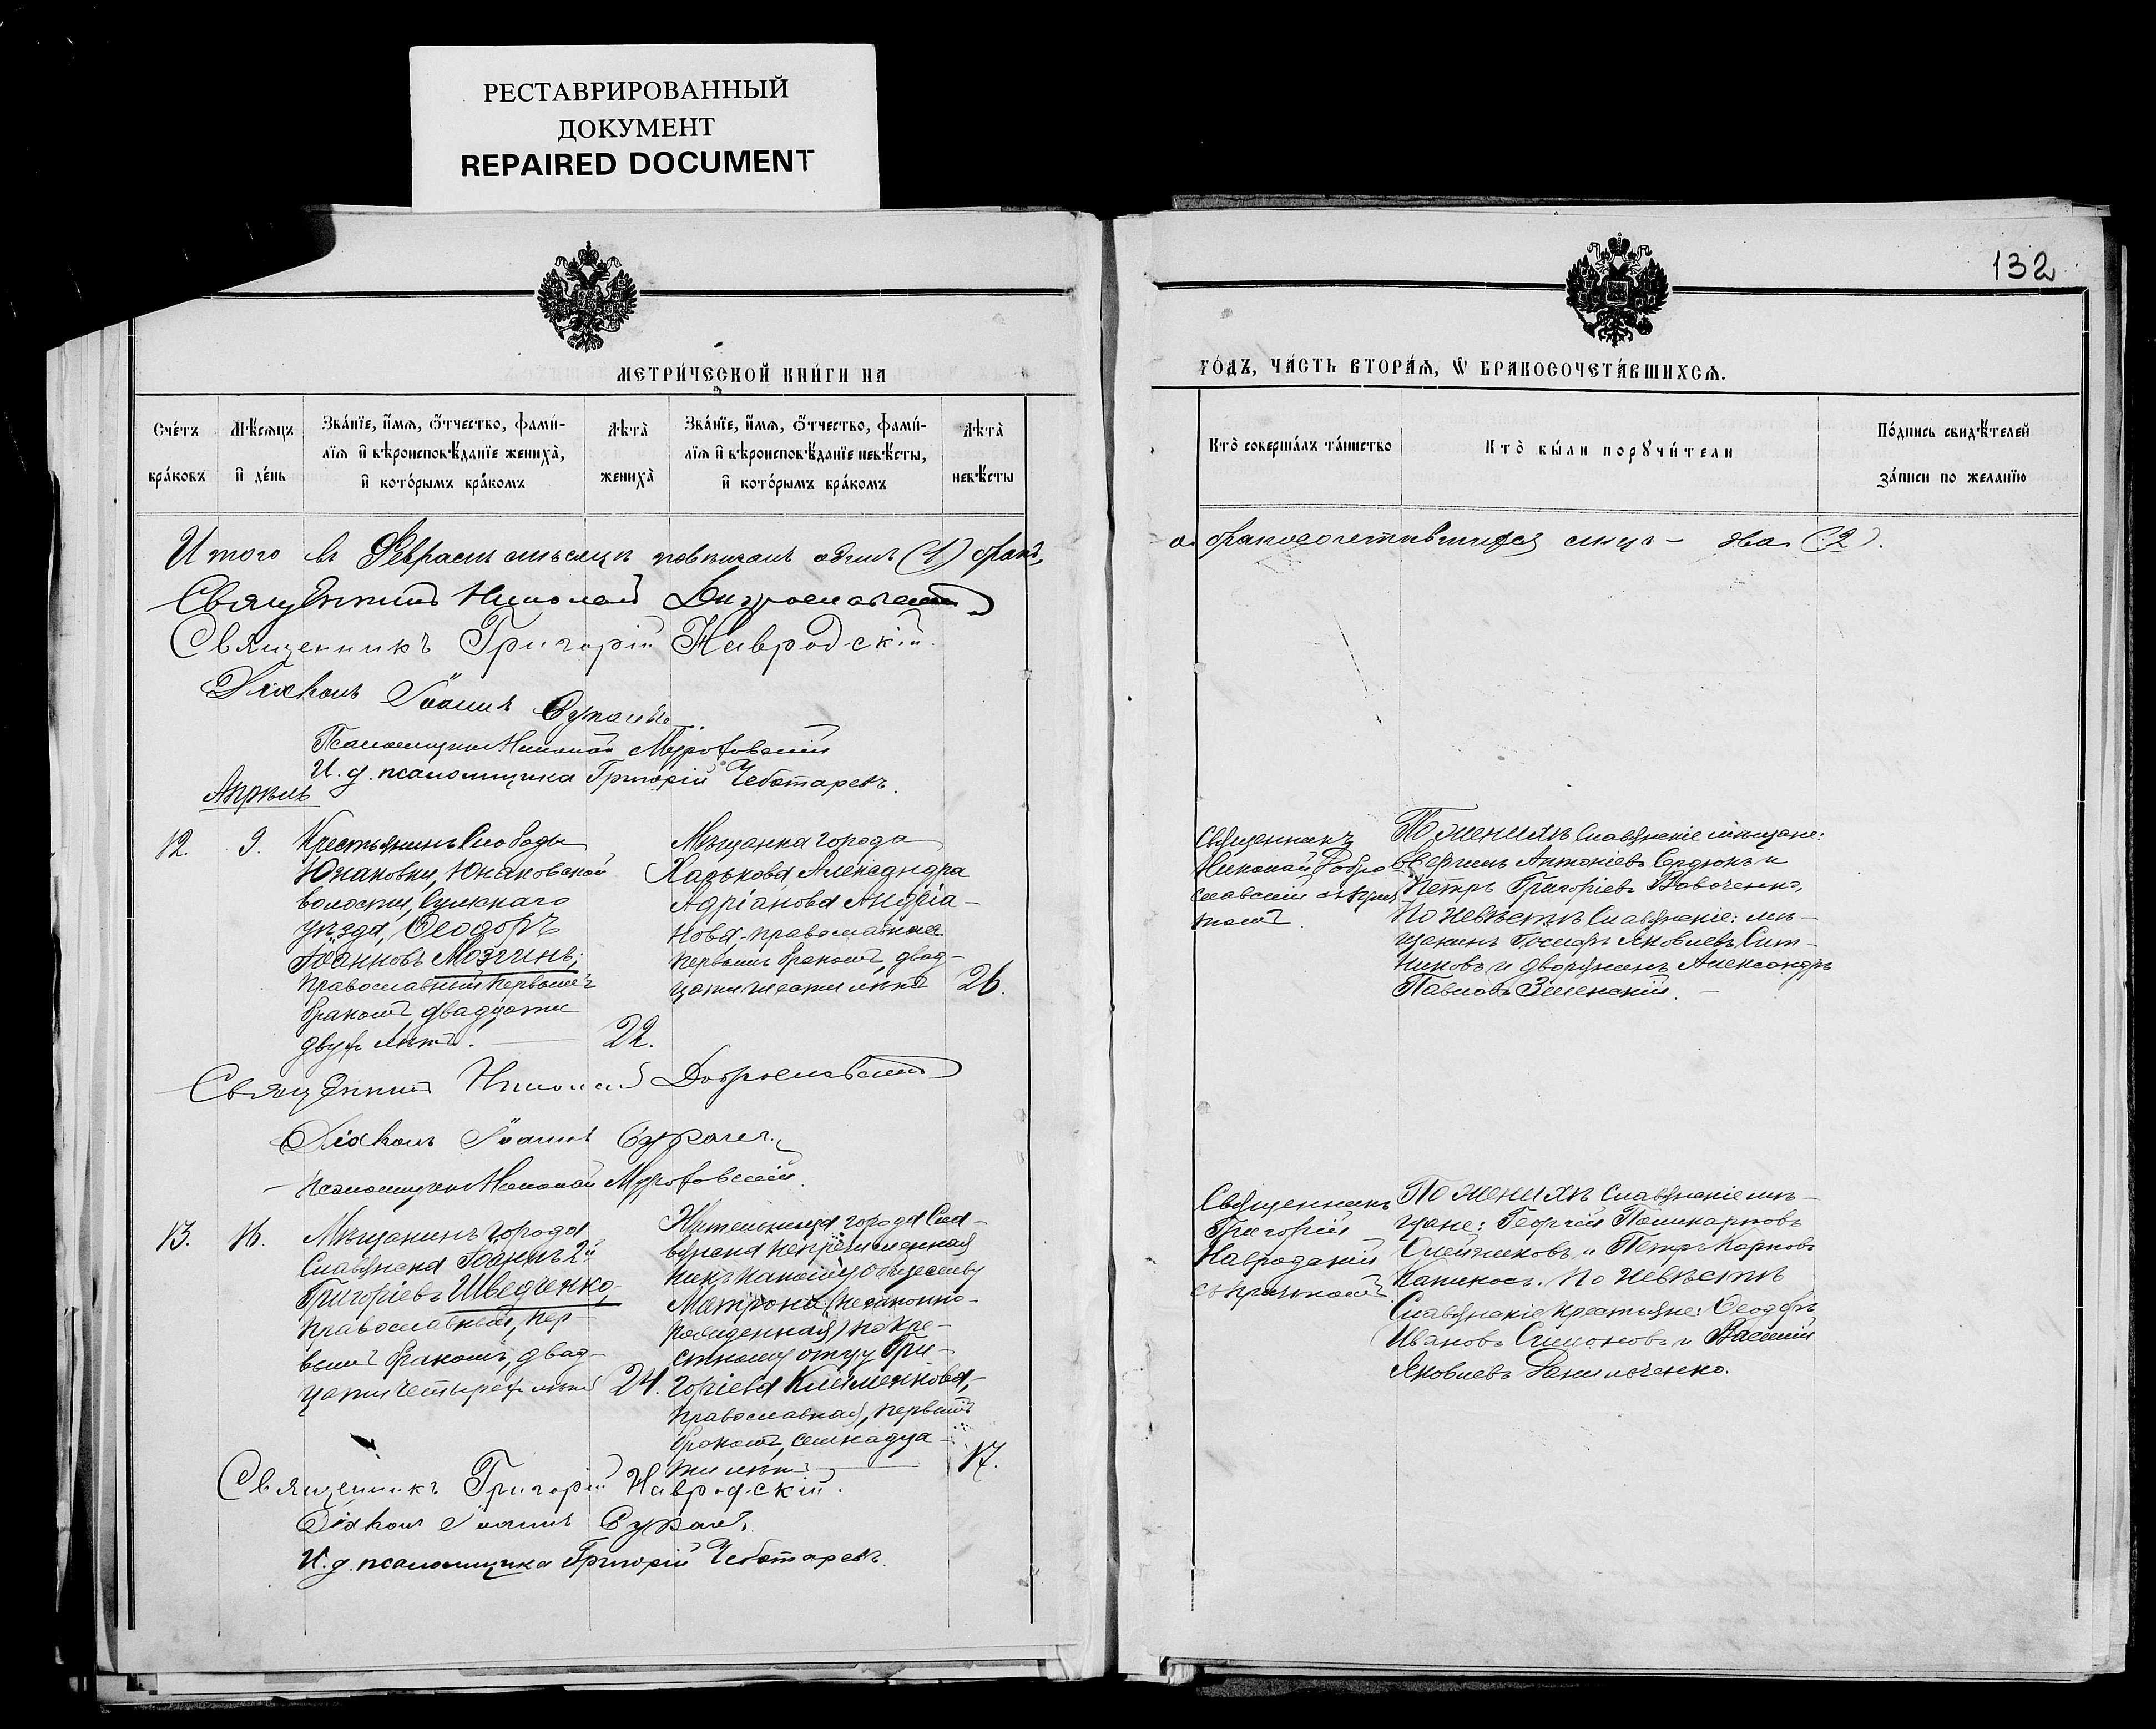 РЕСТАВРИРОВАННЫЙ
ДОКУМЕНТ
REPAIRED DOCUMENT
МЕТРИ́ЧЕСКОЙ КНИ́ГИ НА
Сче́тъ бра́ковъ
Мѣ́сяцъ и҆ де́нь
Зва́нїе, и҆́мѧ, ѻ҆́тчество, фами́-
лїѧ и҆ вѣроисповѣ́данїе жениха̀,
и҆ кото́рымъ бра́комъ
Лѣта̀ жениха̀
Зва́нїе, и҆́мѧ, ѻ҆́тчество, фами́-
лїѧ и҆ вѣроисповѣ́данїе невѣ́сты,
и҆ кото́рымъ бра́комъ
Лѣта̀ невѣ́сты
Итого въ Февралѣ мѣсяцѣ повѣнчанъ одинъ (1) бракъ,
Священникъ Николай Доброславскій
Священникъ Григорій Навродскій.
Діаконъ Іоаннъ
Псаломщикъ Николай
И. д. псаломщика Григорій Чеботаревъ.
Апрѣль
12.
9.
Крестьянинъ Слободы
Юнаковки, Юнаковской
волости, Сумскаго
уѣзда, Ѳеодоръ
Іоанновъ Мозгинъ,
православный, первымъ
бракомъ, двадцати
двухъ лѣтъ.
22.
Мѣщанка города
Харькова Александра
Адріанова Андрiа-
нова, православная
первымъ бракомъ, двад-
цати шести лѣтъ
26.
Священникъ Николай Доброславскій
Діаконъ Іоаннъ
Псаломщикъ Николай
13.
16.
Мѣщанинъ города
Славянска Іоаннъ 2й
Григоріевъ Шведченко,
православный, пер-
вымъ бракомъ, двад-
цати четырехъ лѣтъ
24.
Жительница города Сла-
вянска непричисленная
ни къ какому обществу
Матрона (незаконно-
рожденная) по кре-
стному отцу Гри-
горіева Клименкова,
православная, первымъ
бракомъ, семнадца-
ти лѣтъ
17.
Священникъ Григорій Навродскій.
Діаконъ Іоаннъ
И. д. псаломщика Григорій Чеботаревъ.
132
ГО́ДЪ, ЧА́СТЬ ВТОРА́Ѧ, Ѽ БРАКОСОЧЕТА́ВШИХСѦ.
Кто̀ соверша́лъ та́инство
Кто̀ бы́ли порꙋчи́тели
По́дпись свидѣ́телей
за́писи по жела́нїю
а бракосочетавшихся лицъ - два (2).
Священникъ
Николай Добро
славскій съ прич
томъ.
По женихѣ Славянскіе мѣщане:
Антоніевъ Сердюкъ и
Петръ Григоріевъ
По невѣстѣ Славянскіе: мѣ-
щанинъ Іосифъ Яковлевъ Сит-
никовъ и дворянинъ Александръ
Павловъ Зеленскій.
Священникъ
Григорій
Навродскій
съ причтомъ.
По женихѣ Славянскіе мѣ-
щане: Георгій Поликарповъ
Олейниковъ и Петръ Карповъ
По невѣстѣ
Славянскіе крестьяне: Ѳеодоръ
Ивановъ Симоновъ и Василій
Яковлевъ Данильченко.